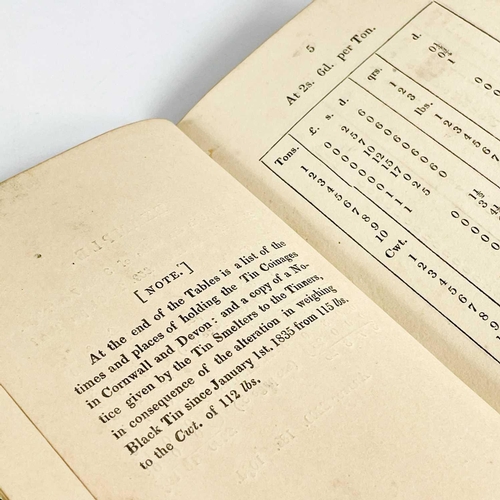 [NOTE.]
At the end of the Tables is a list of the
times and places of holding the Tin Coinages
in Cornwall and Devon: and a copy of a No-
tice given by the Tin Smelters to the Tinners,
in consequence of the alteration in weighing
Black Tin since January 1st, 1835 from 115 lbs.
to the Cwt. of 112 lbs.
5
At 2s. 6d. per Ton.
Tons. £. s. d.
1 0 2 6
2 0 5 0
3 0 7 6
4 0 10 0
5 0 12 6
6 0 15 0
7 0 17 6
8 1 0 0
9 1 2 6
10 1 5 0
Cwt.
1
2
3
4
5
6
7
8
9
qrs. d.
1
2
3
lbs.
1
2
3
4
5
6
7
8